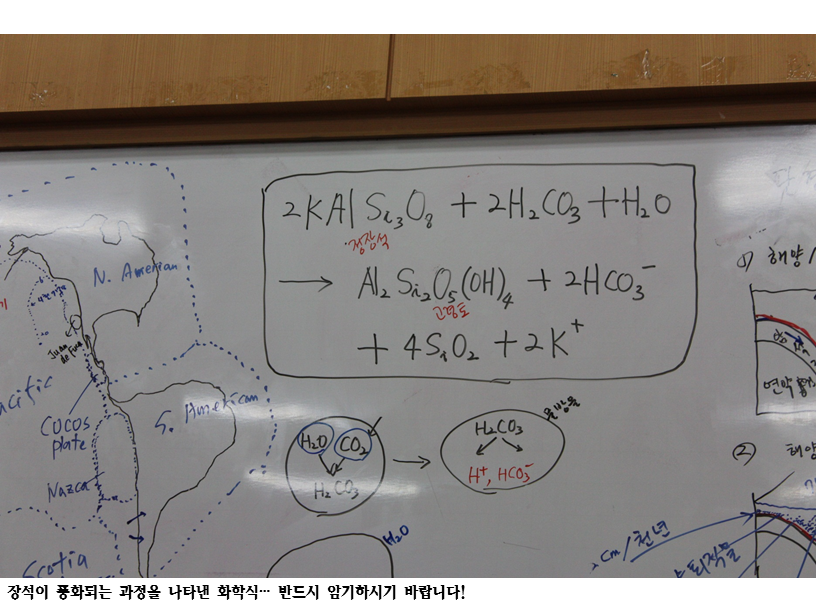 2KAlSi₃O₈ + 2H₂CO₃ + H₂O
정장석
→ Al₂Si₂O₅(OH)₄ + 2HCO₃⁻
고령토
+ 4SiO₂ + 2K⁺
N. American
Juan de Fuca
acific
Cocos
plate
S. American
Nazca
Scotia
H₂O CO₂
H₂CO₃
→
빗방울
H₂CO₃
H⁺, HCO₃⁻
H₂O
1) 해양/
연약
2) 해양
cm/천년
퇴적물
장석이 풍화되는 과정을 나타낸 화학식… 반드시 암기하시기 바랍니다!